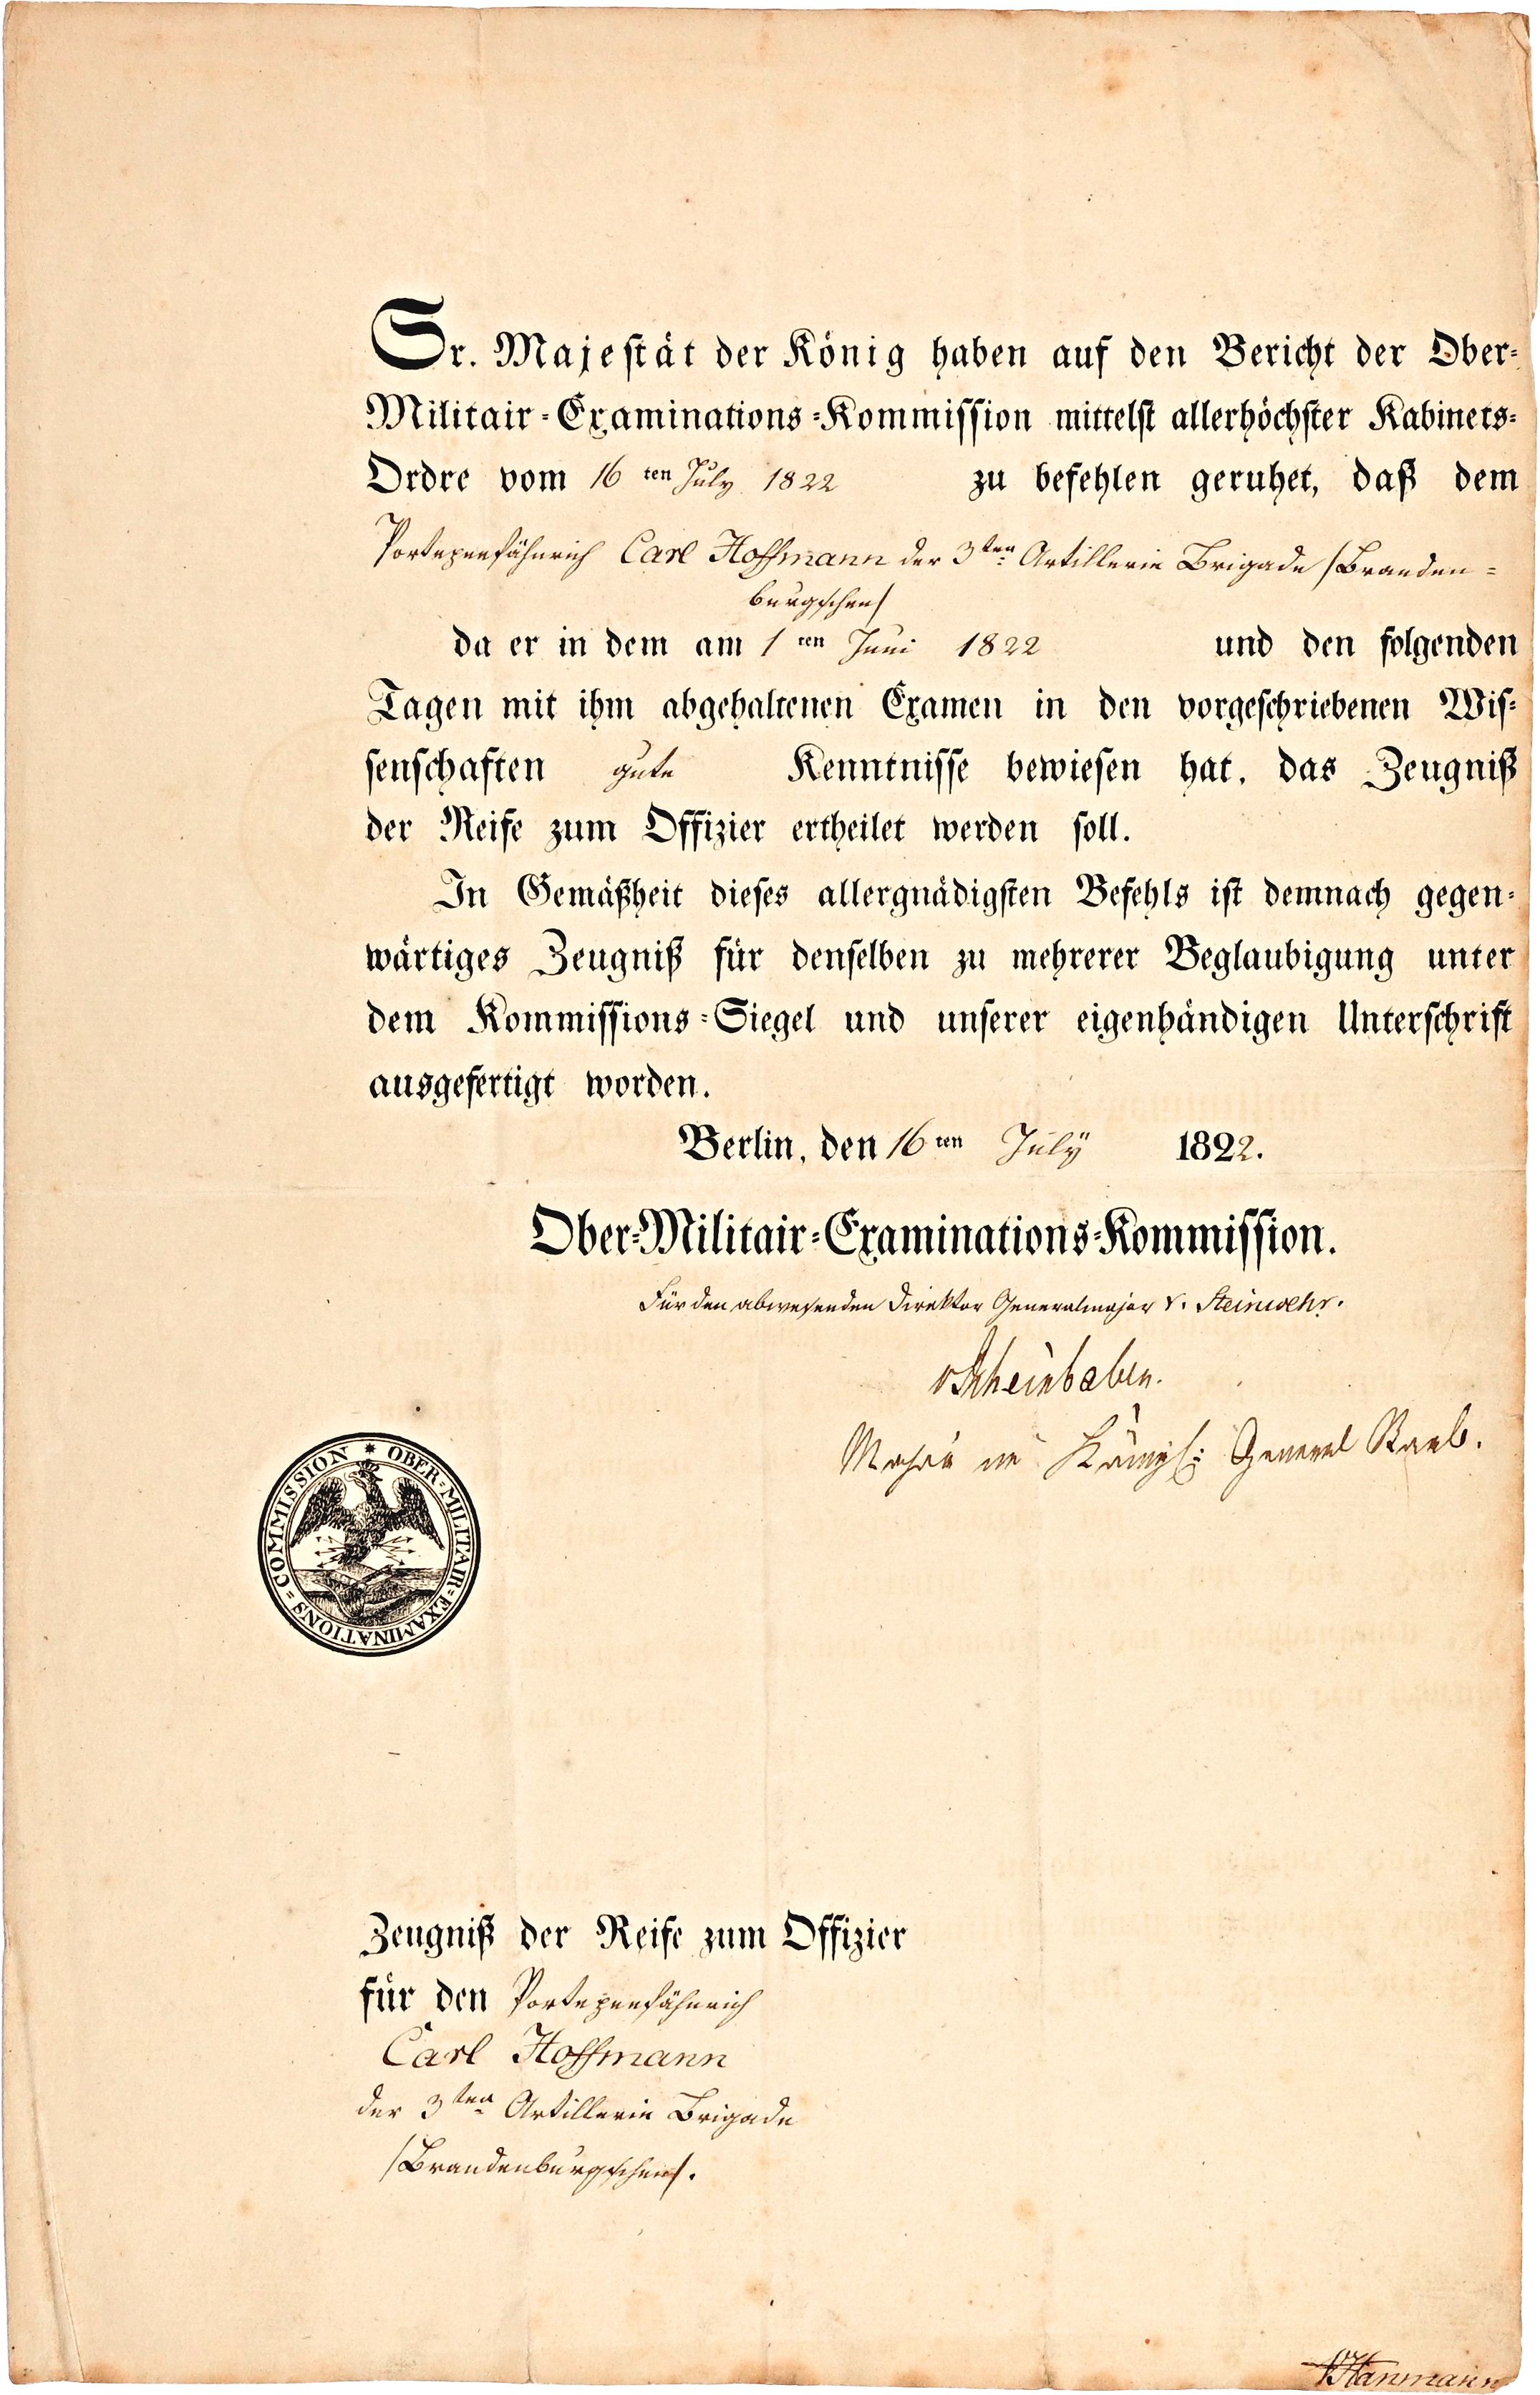 Sr. Majestät der König haben auf den Bericht der Ober-
Militair-Examinations-Kommission mittelst allerhöchster Kabinets-
Ordre vom 16ten July 1822 zu befehlen geruhet, daß dem
Portepeefähnrich Carl Hoffmann der 3ten Artillerie Brigade /Branden-
burgschen/
da er in dem am 1ten Juni 1822 und den folgenden
Tagen mit ihm abgehaltenen Examen in den vorgeschriebenen Wis-
senschaften gute Kenntnisse bewiesen hat, das Zeugniß
der Reife zum Offizier ertheilet werden soll.
In Gemäßheit dieses allergnädigsten Befehls ist demnach gegen-
wärtiges Zeugniß für denselben zu mehrerer Beglaubigung unter
dem Kommissions-Siegel und unserer eigenhändigen Unterschrift
ausgefertigt worden.
Berlin, den 16ten July 1822.
Ober-Militair-Examinations-Kommission.
Für den abwesenden Direktor Generalmajor v. Steinwehr.
vRheinbaben.
Major im Königl: General Staab.
OBER-MILITAIR-EXAMINATIONS-COMMISSION
Zeugniß der Reife zum Offizier
für den Portepeefähnrich
Carl Hoffmann
der 3ten Artillerie Brigade
/Brandenburgschen/.